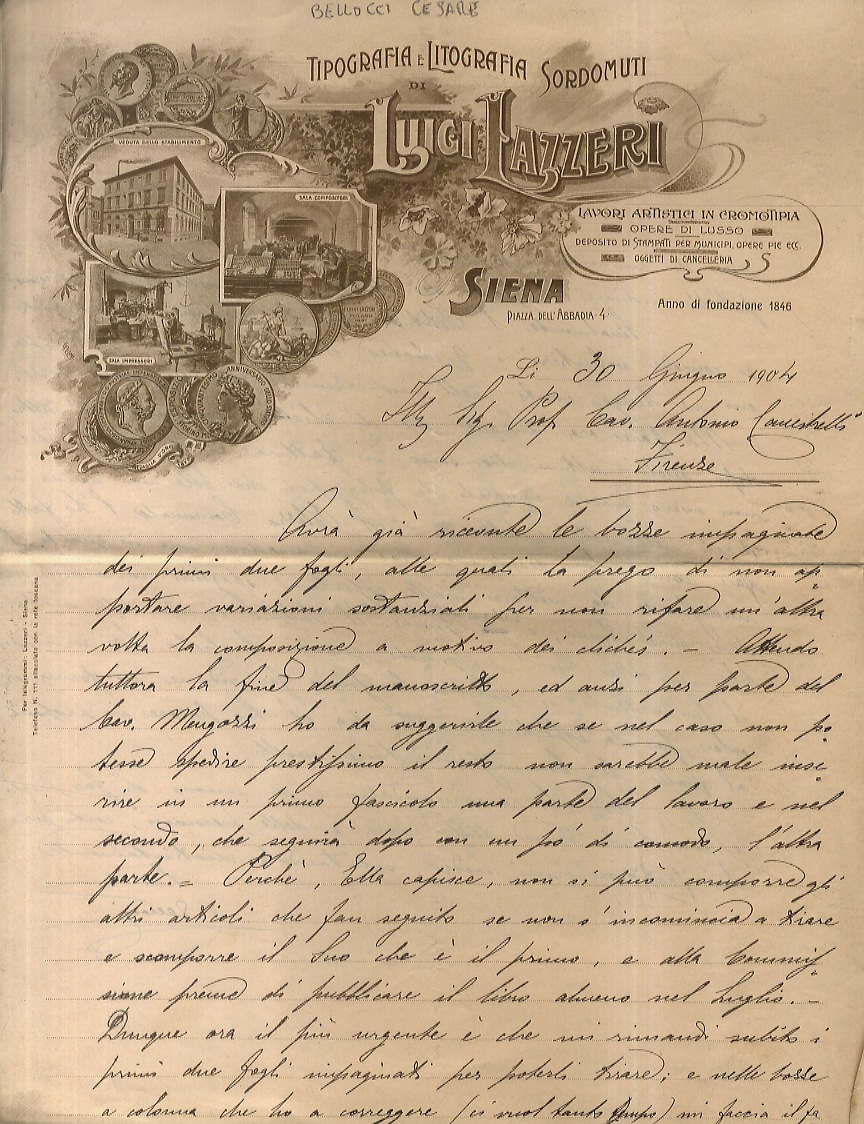 BELLOCCI CESARE
TIPOGRAFIA E LITOGRAFIA SORDOMUTI
DI
LUIGI LAZZERI
VEDUTA DELLO STABILIMENTO
SALA COMPOSITORI
SALA IMPRESSORI
LAVORI ARTISTICI IN CROMOTIPIA
OPERE DI LUSSO
DEPOSITO DI STAMPATI PER MUNICIPI, OPERE PIE ECC.
OGGETTI DI CANCELLERIA
SIENA
PIAZZA DELL'ABBADIA 4
Anno di fondazione 1846
Li 30 Giugno 1904
Ill. Sig. Prof. Cav. Antonio Canestrelli
Firenze
Avrà già ricevute le bozze impaginate
dei primi due fogli, alle quali la prego di non ap
portare variazioni sostanziali per non rifare un'altra
volta la composizione a motivo dei clichés. — Attendo
tuttora la fine del manoscritto, ed anzi per parte del
Cav. Mengozzi ho da suggerirle che se nel caso non po
tesse spedire prestissimo il resto non sarebbe male inse
rire in un primo fascicolo una parte del lavoro e nel
secondo, che seguirà dopo con un pò di comodo, l'altra
parte. = Perchè, Ella capisce, non si può comporre gli
altri articoli che fan seguito se non s'incomincia a tirare
e scomporre il Suo che è il primo, e alla Commis
sione preme di pubblicare il libro almeno nel Luglio. —
Dunque ora il più urgente è che mi rimandi subito i
primi due fogli impaginati per poterli tirare; e nelle bozze
a colonna che ho a correggere (ci vuol tanto tempo) mi faccia il fa
Per telegrammi: Lazzeri - Siena
Telefono N. 111 allacciato con la rete toscana